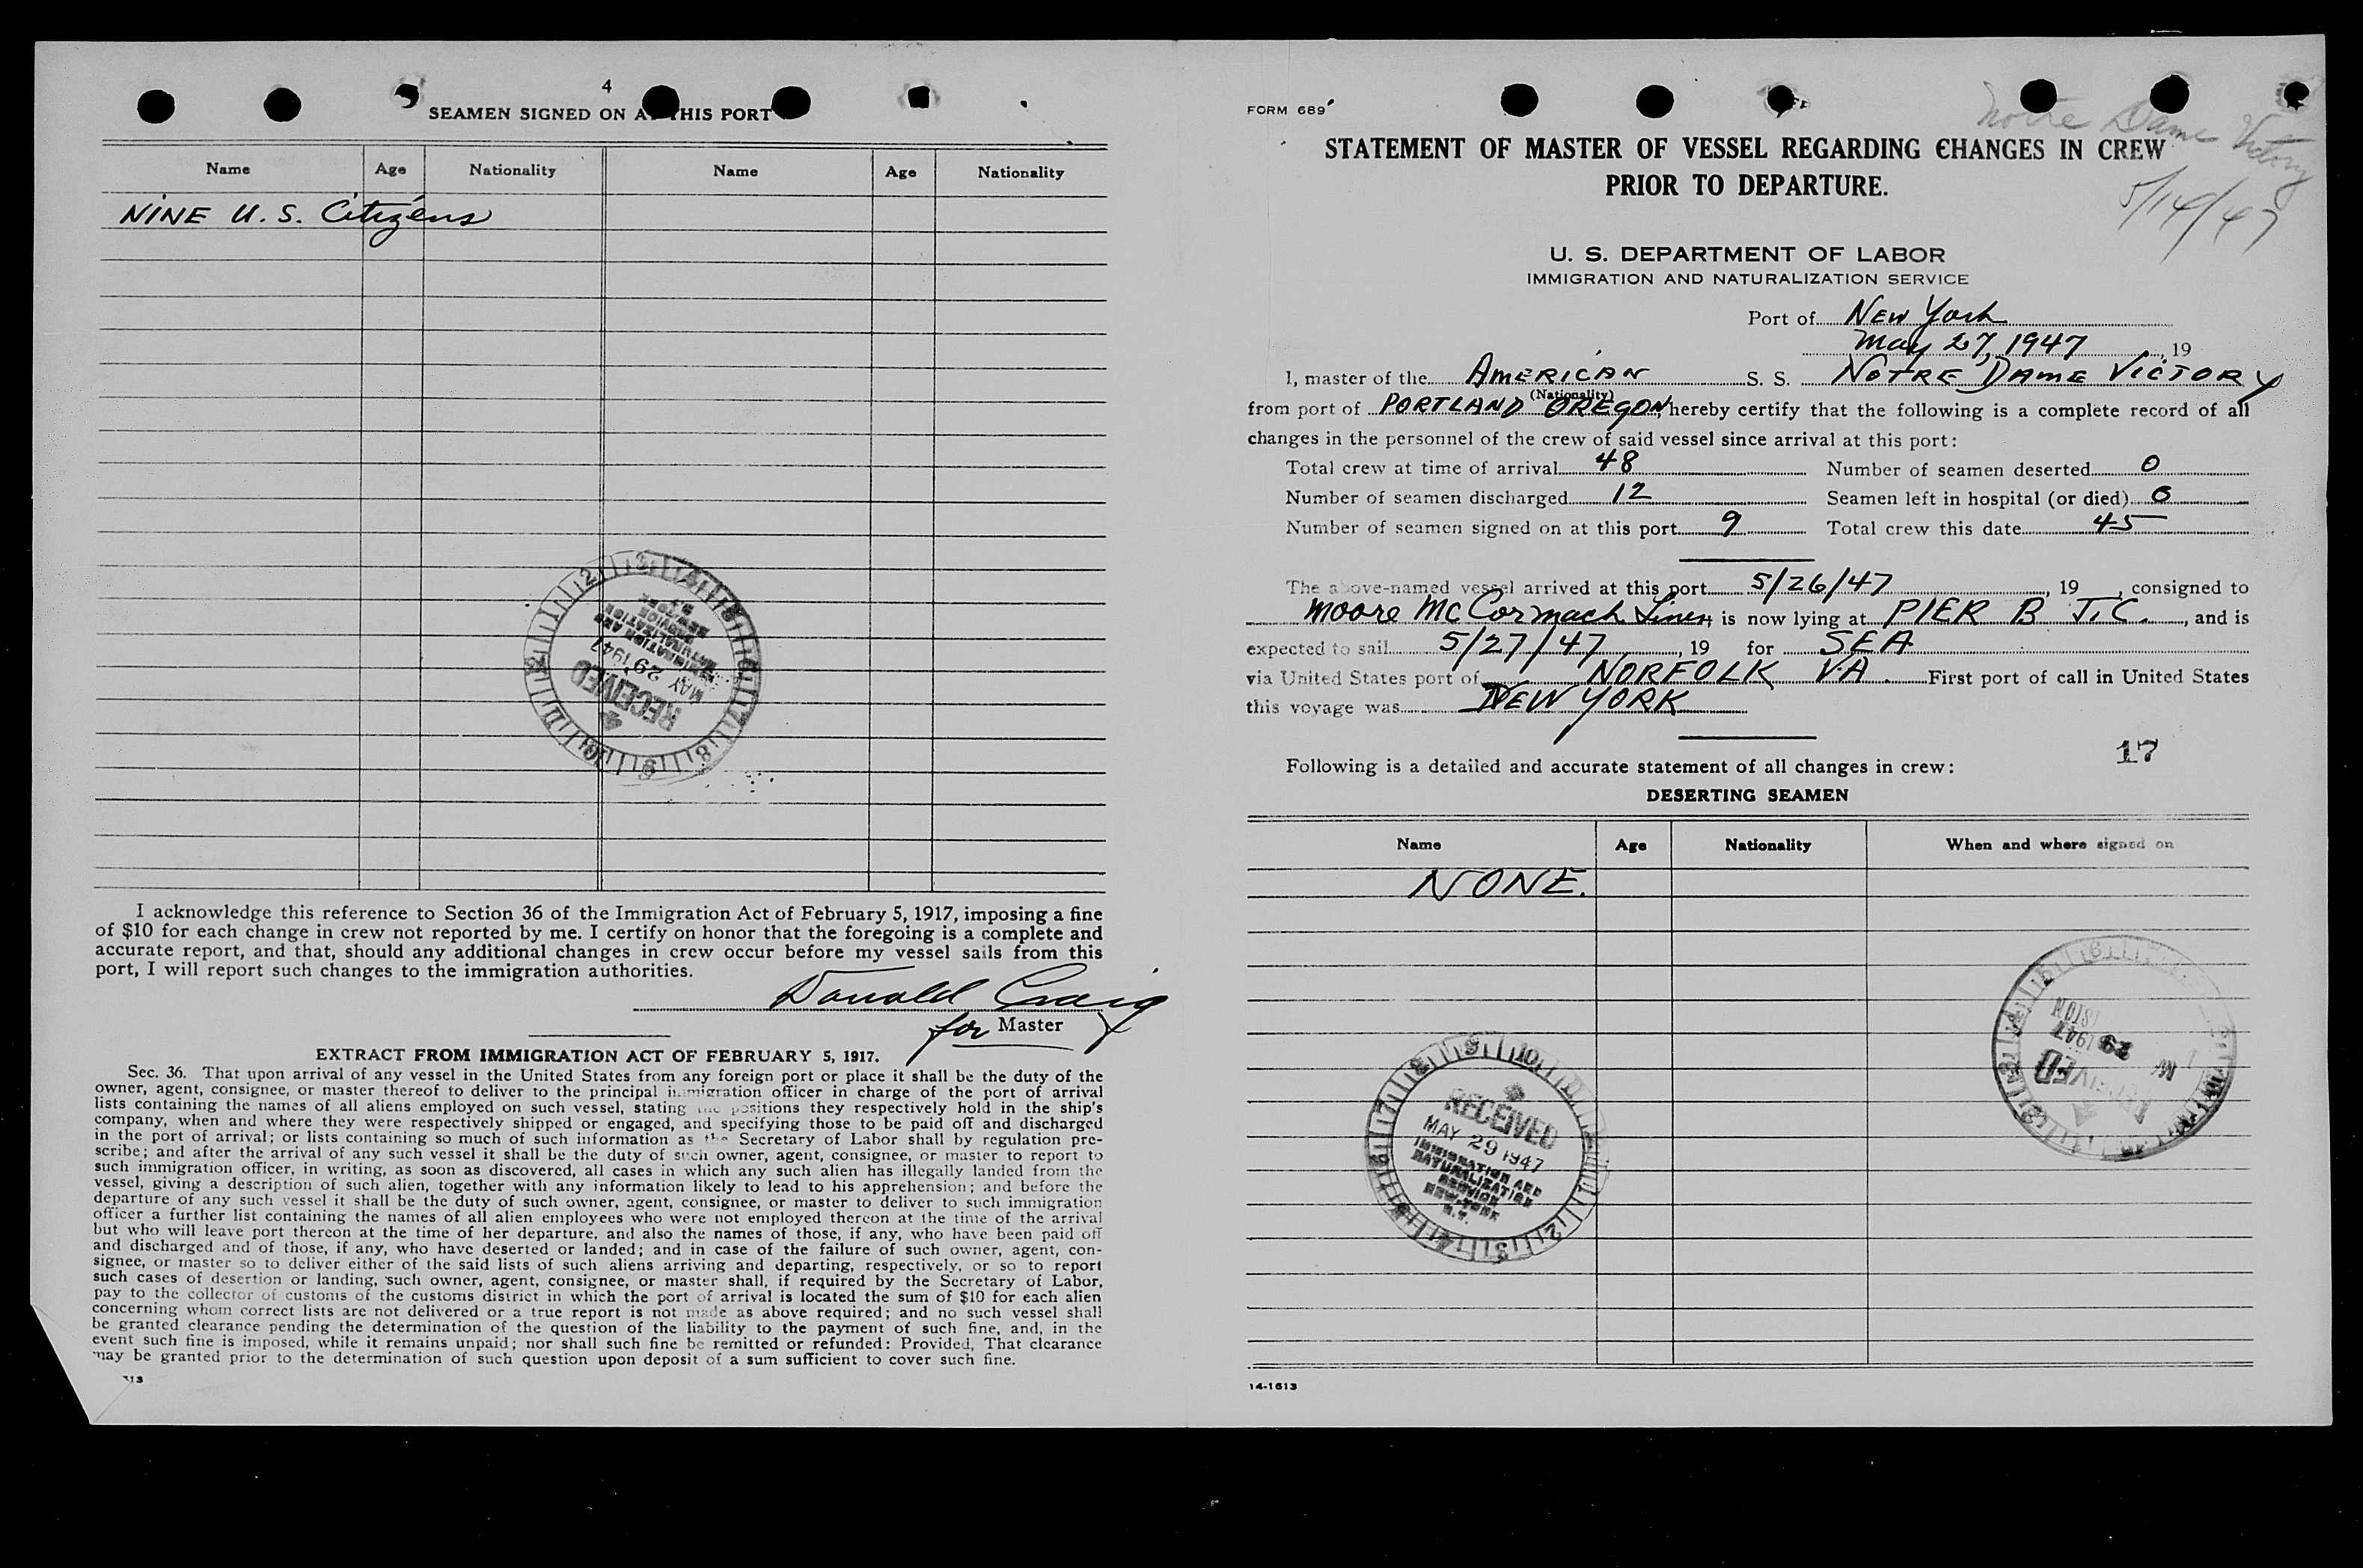 4
SEAMEN SIGNED ON AT THIS PORT
Name Age Nationality Name Age Nationality
NINE U. S. Citizens
RECEIVED
MAY 29 1947
IMMIGRATION AND
NATURALIZATION
SERVICE
I acknowledge this reference to Section 36 of the Immigration Act of February 5, 1917, imposing a fine
of $10 for each change in crew not reported by me. I certify on honor that the foregoing is a complete and
accurate report, and that, should any additional changes in crew occur before my vessel sails from this
port, I will report such changes to the immigration authorities.
Donald Craig
for Master
EXTRACT FROM IMMIGRATION ACT OF FEBRUARY 5, 1917.
Sec. 36. That upon arrival of any vessel in the United States from any foreign port or place it shall be the duty of the
owner, agent, consignee, or master thereof to deliver to the principal immigration officer in charge of the port of arrival
lists containing the names of all aliens employed on such vessel, stating the positions they respectively hold in the ship's
company, when and where they were respectively shipped or engaged, and specifying those to be paid off and discharged
in the port of arrival; or lists containing so much of such information as the Secretary of Labor shall by regulation pre-
scribe; and after the arrival of any such vessel it shall be the duty of such owner, agent, consignee, or master to report to
such immigration officer, in writing, as soon as discovered, all cases in which any such alien has illegally landed from the
vessel, giving a description of such alien, together with any information likely to lead to his apprehension; and before the
departure of any such vessel it shall be the duty of such owner, agent, consignee, or master to deliver to such immigration
officer a further list containing the names of all alien employees who were not employed thereon at the time of the arrival
but who will leave port thereon at the time of her departure, and also the names of those, if any, who have been paid off
and discharged and of those, if any, who have deserted or landed; and in case of the failure of such owner, agent, con-
signee, or master so to deliver either of the said lists of such aliens arriving and departing, respectively, or so to report
such cases of desertion or landing, such owner, agent, consignee, or master shall, if required by the Secretary of Labor,
pay to the collector of customs of the customs district in which the port of arrival is located the sum of $10 for each alien
concerning whom correct lists are not delivered or a true report is not made as above required; and no such vessel shall
be granted clearance pending the determination of the question of the liability to the payment of such fine, and, in the
event such fine is imposed, while it remains unpaid; nor shall such fine be remitted or refunded: Provided, That clearance
may be granted prior to the determination of such question upon deposit of a sum sufficient to cover such fine.
FORM 689
Notre Dame Victory
5/14/47
STATEMENT OF MASTER OF VESSEL REGARDING CHANGES IN CREW
PRIOR TO DEPARTURE.
U. S. DEPARTMENT OF LABOR
IMMIGRATION AND NATURALIZATION SERVICE
Port of New York
May 27, 1947, 19
I, master of the AMERICAN S. S. NOTRE DAME VICTORY
(Nationality)
from port of PORTLAND OREGON, hereby certify that the following is a complete record of all
changes in the personnel of the crew of said vessel since arrival at this port:
Total crew at time of arrival 48 Number of seamen deserted 0
Number of seamen discharged 12 Seamen left in hospital (or died) 0
Number of seamen signed on at this port 9 Total crew this date 45
The above-named vessel arrived at this port 5/26/47, 19 , consigned to
Moore McCormack Lines, is now lying at PIER B J.C., and is
expected to sail 5/27/47, 19 for SEA
via United States port of NORFOLK VA. First port of call in United States
this voyage was NEW YORK
17
Following is a detailed and accurate statement of all changes in crew:
DESERTING SEAMEN
Name Age Nationality When and where signed on
NONE.
RECEIVED
MAY 29 1947
IMMIGRATION AND
NATURALIZATION
SERVICE
NEW YORK
N.Y.
RECEIVED
29 1947
14-1613